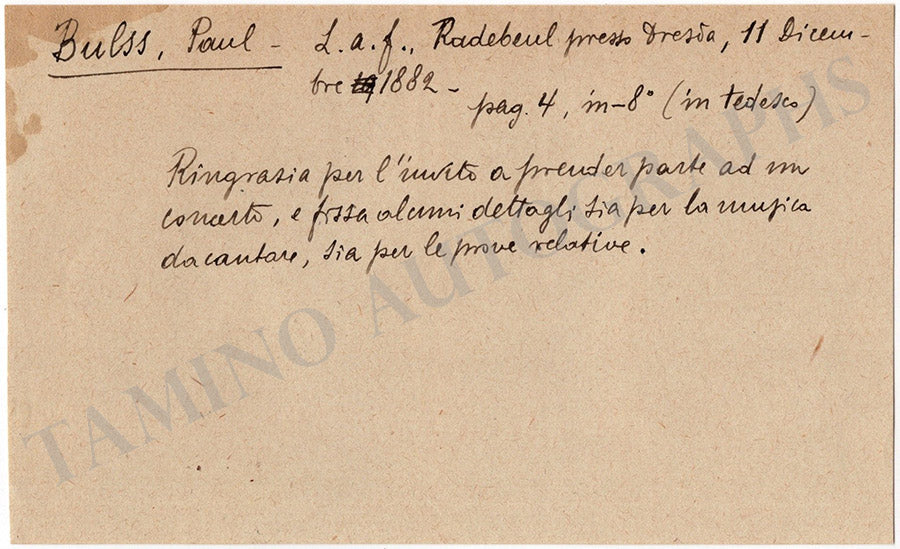 Bulss, Paul - L. a. f., Radebeul presso Dresda, 11 Dicem-
bre 1882 -
pag. 4, in-8° (in tedesco)
Ringrazia per l'invito a prender parte ad un
concerto, e fissa alcuni dettagli sia per la musica
da cantare, sia per le prove relative.
TAMINO AUTOGRAPHS